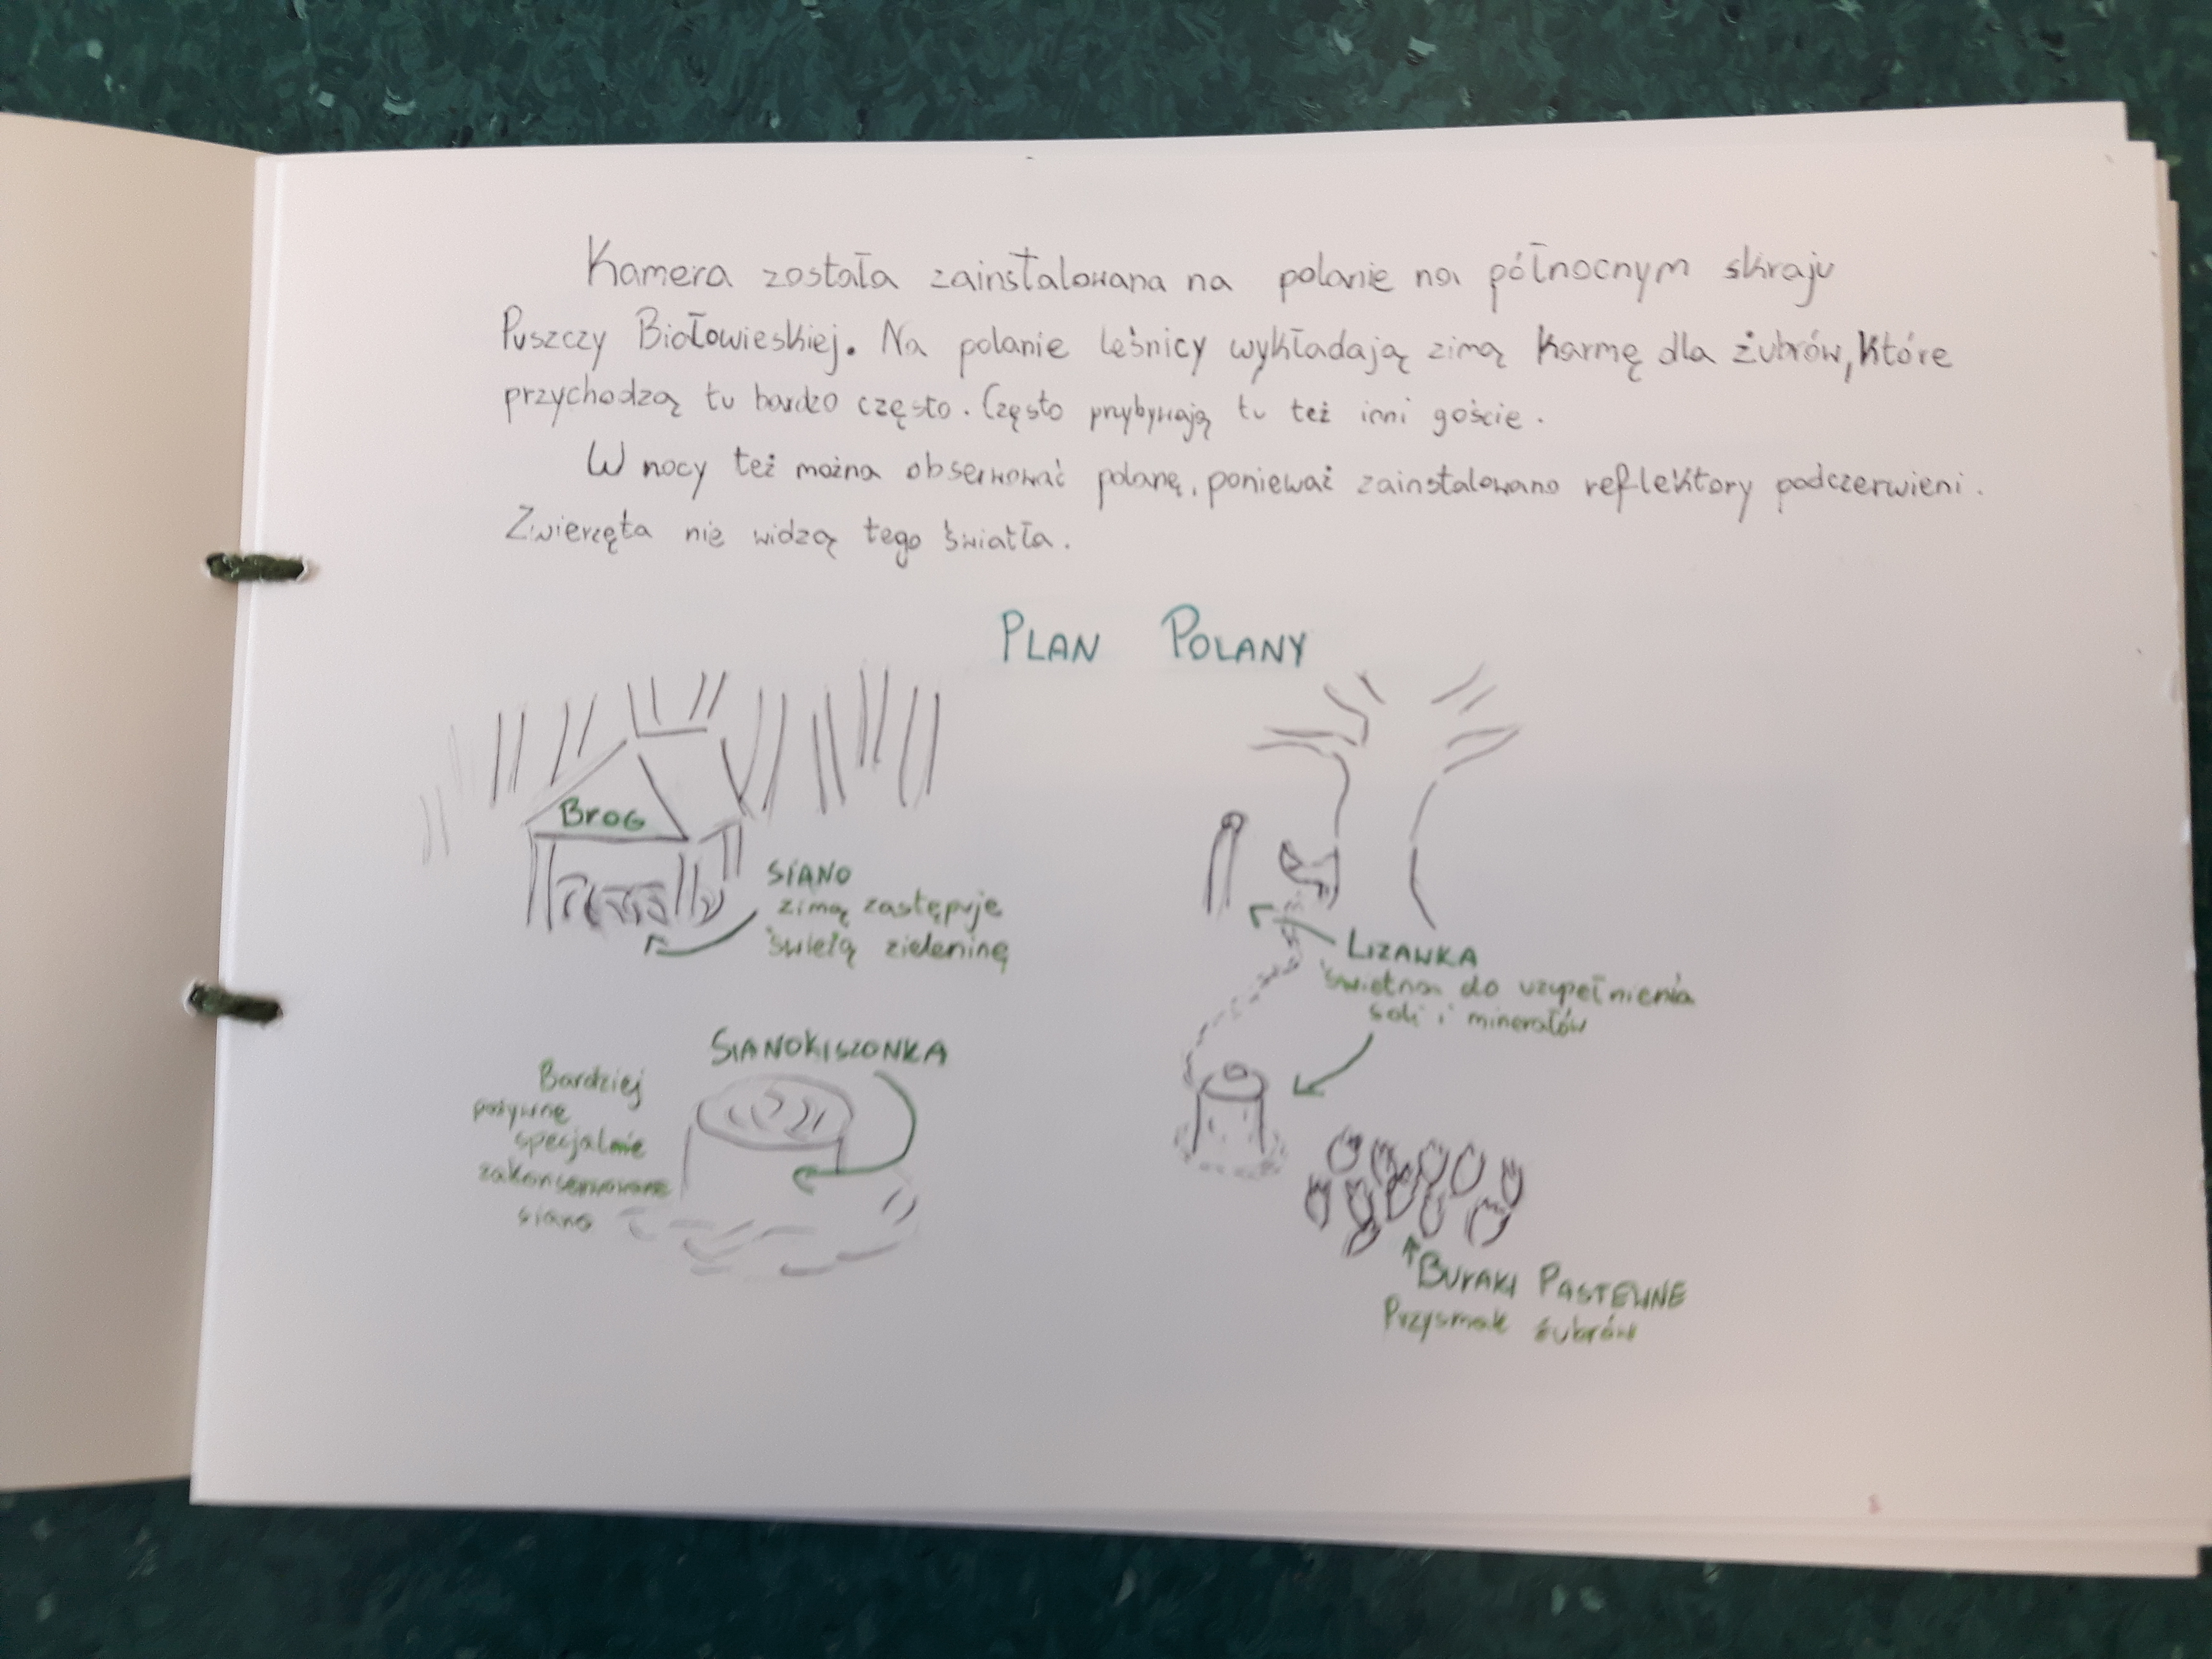 Kamera została zainstalowana na polanie na północnym skraju
Puszczy Białowieskiej. Na polanie leśnicy wykładają zimą karmę dla żubrów, które
przychodzą tu bardzo często. Często przybywają tu też inni goście.
W nocy też można obserwować polanę, ponieważ zainstalowano reflektory podczerwieni.
Zwierzęta nie widzą tego światła.
PLAN POLANY
BROG
SIANO
zimą zastępuje
świeżą zieleninę
LIZAWKA
świetna do uzupełnienia
soli i minerałów
SIANOKISZONKA
Bardziej
pożywne
specjalnie
zakonserwowane
siano
BURAKI PASTEWNE
Przysmak żubrów